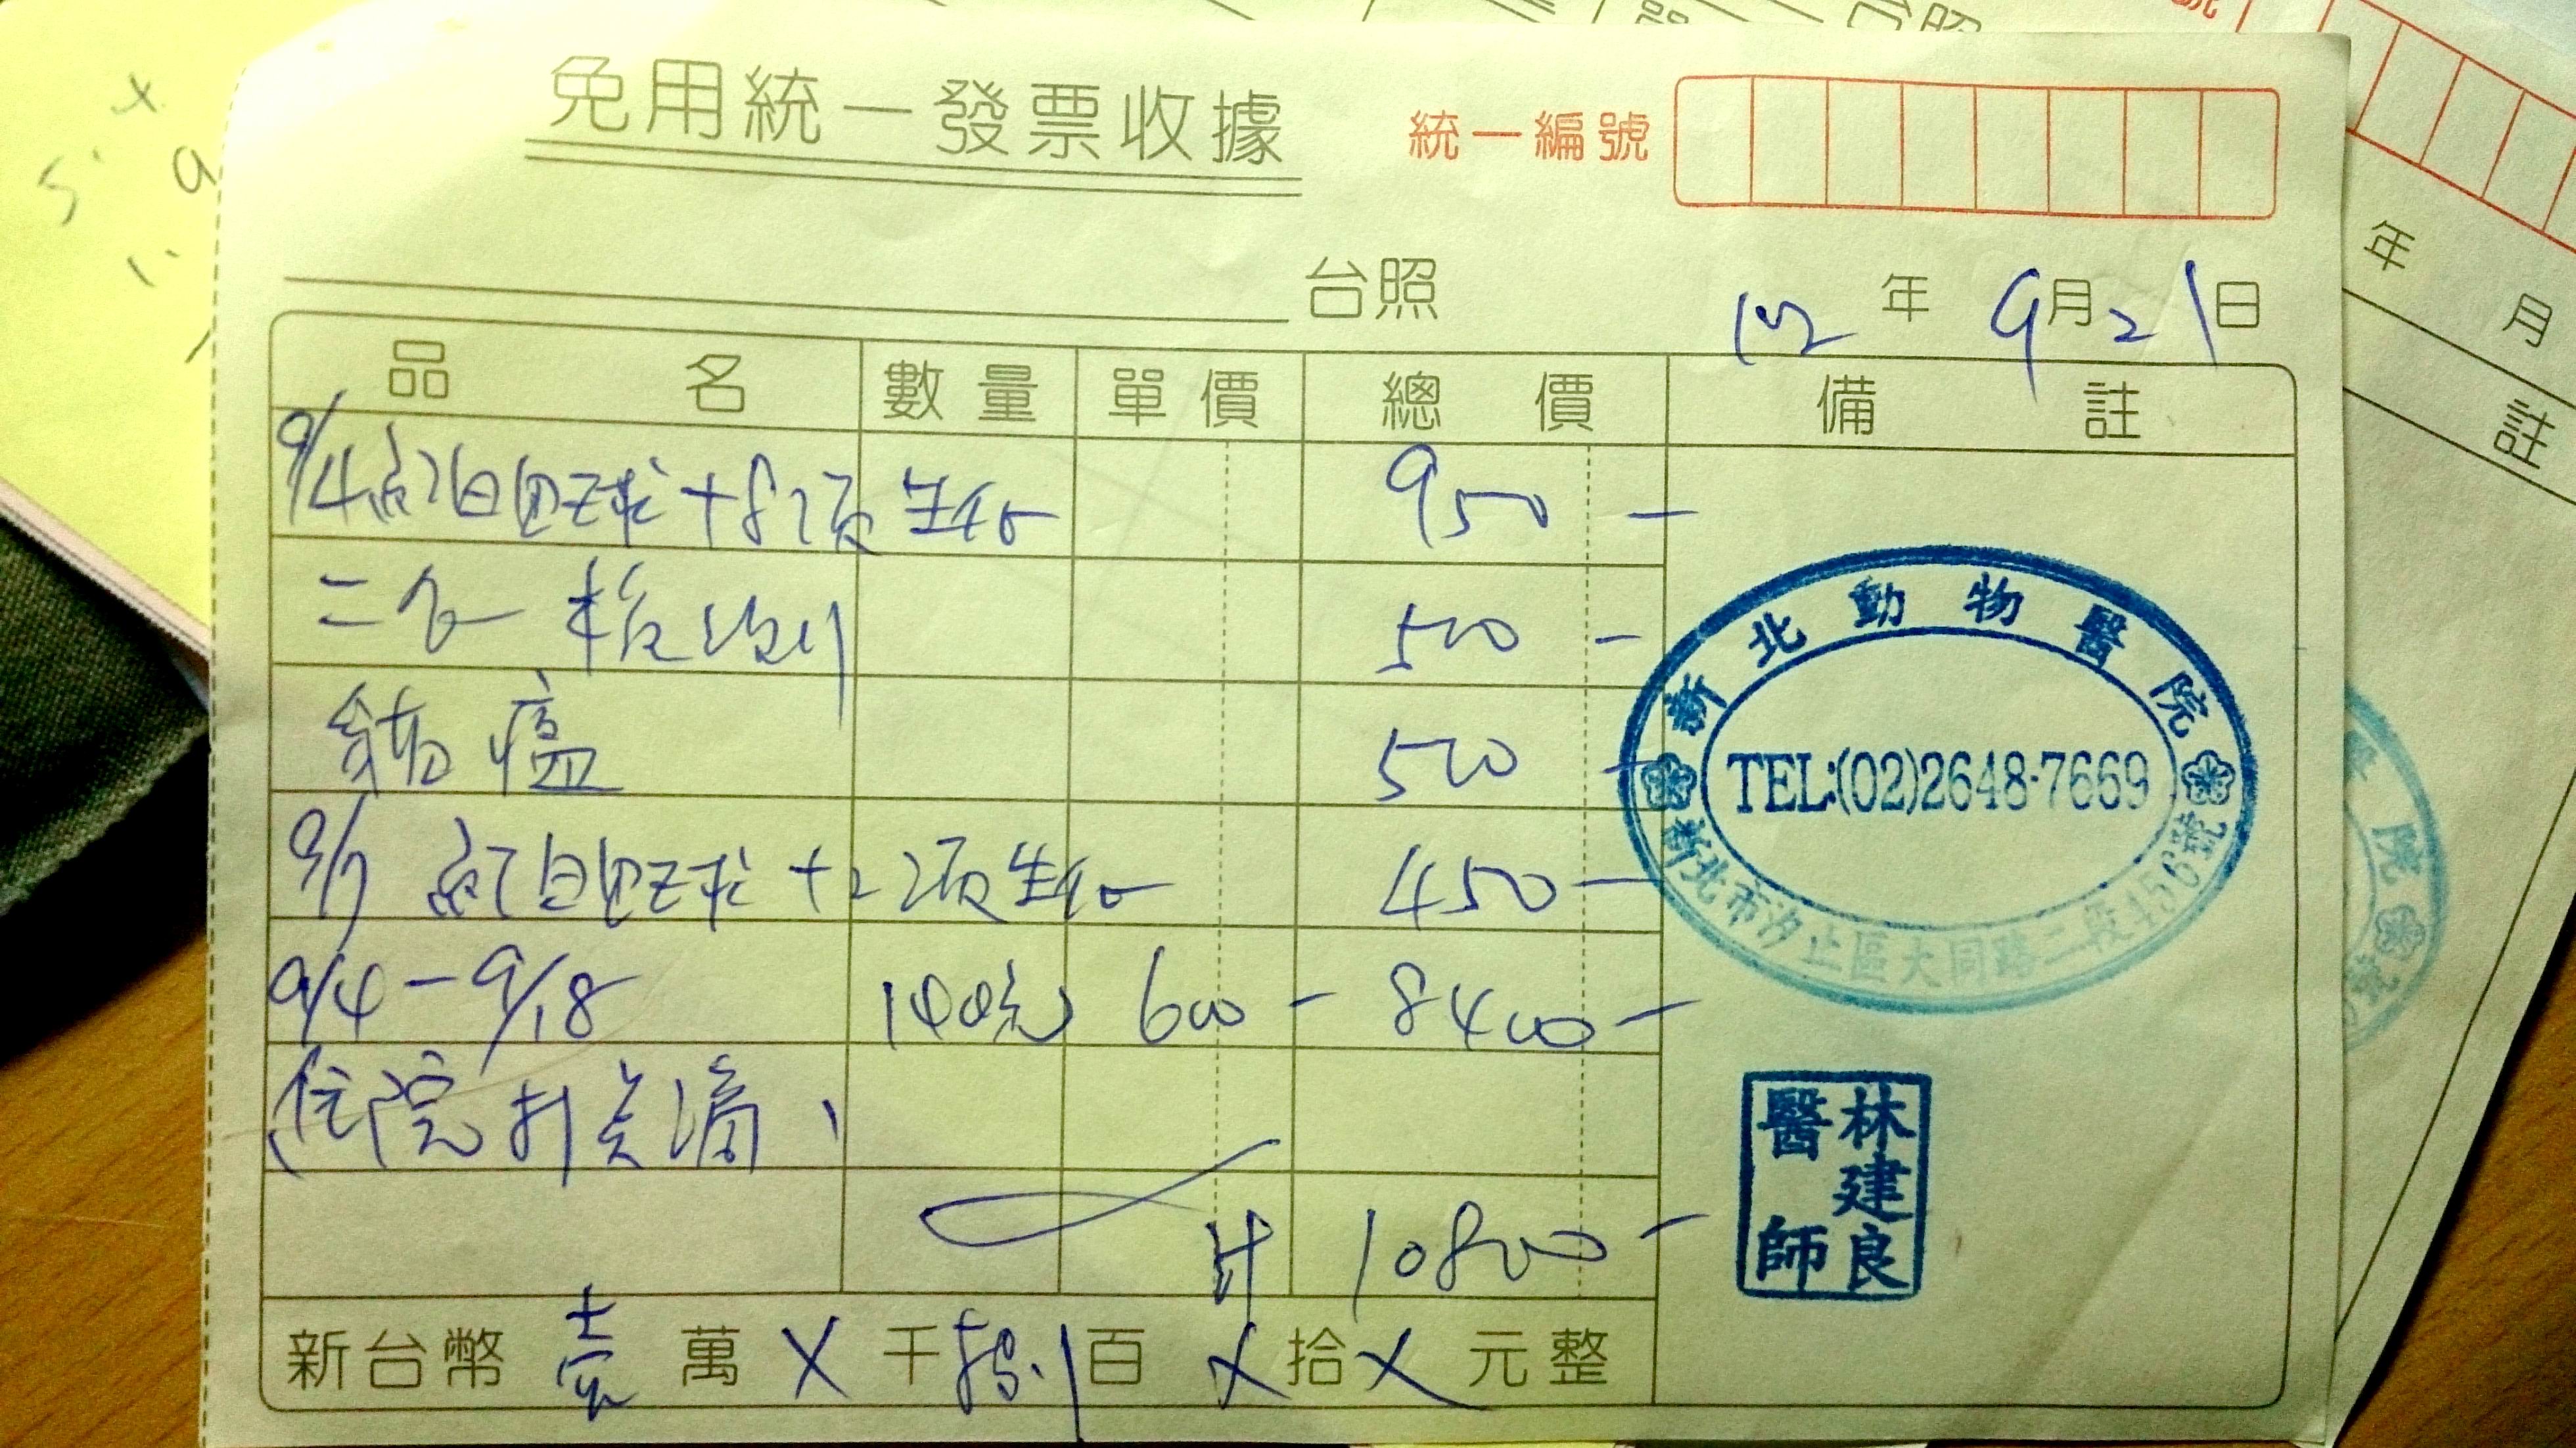 免用統一發票收據
統一編號
台照
102年9月21日
品名 數量 單價 總價 備註
9/4 紅白血球+8項生化 950-
二合一檢測 500-
貓瘟 500-
9/7 紅白血球+2項生化 450-
9/4-9/18 600- 8400-
住院打点滴
計 10800-
新台幣壹萬X千捌百X拾X元整
新北動物醫院
TEL:(02)2648-7669
新北市汐止區大同路二段456號
林建良
醫師
年 月
註